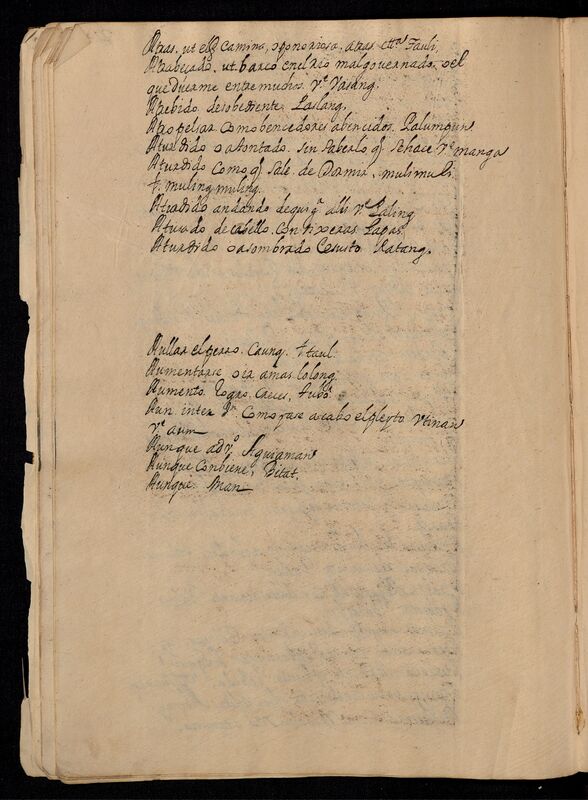 Atras. ut el q camina, o ponoriosa, atras. ett.ª Tauli.
Atrabesado. ut. barco en el rio mal governado. o el
que duerme entre muchos. V.e Vasang.
Atrebido. desobediente. Laslang.
Atropellar como bencedores a bencidos. Palumpun
Aturdido o atontado. sin saberlo q̃ se hace. V.e manga
Aturdido como q̃ sale. de Dormir. mulimuli.
t. muling muling.
Aturdido andando de aqui p.ª alli V.e Paling
Atusado de cabello. con tixeras Lapas.
Aturdido o asombrado Cesusto Ratang.
Aullar el perro. Caung. t. taul.
Aumentarse o ir a mas. Lolong
Aumento. logro. Creces, tubo.
Aun. inter. como fase acabo el pleyto Vtinan
V.e aum
Aunque adv.o Aguiaman
Aunque conbiene, Bitat.
Aunque. Man